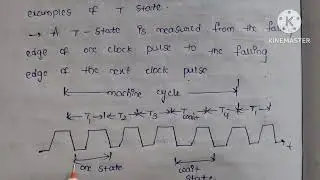 examples of T state.
→ A T-State is measured from the fall
edge of one clock pulse to the falling
edge of the next clock pulse
machine cycle
T1 T2 T3 Twait T4 T1
one state
wait
state
t
KINEMASTER